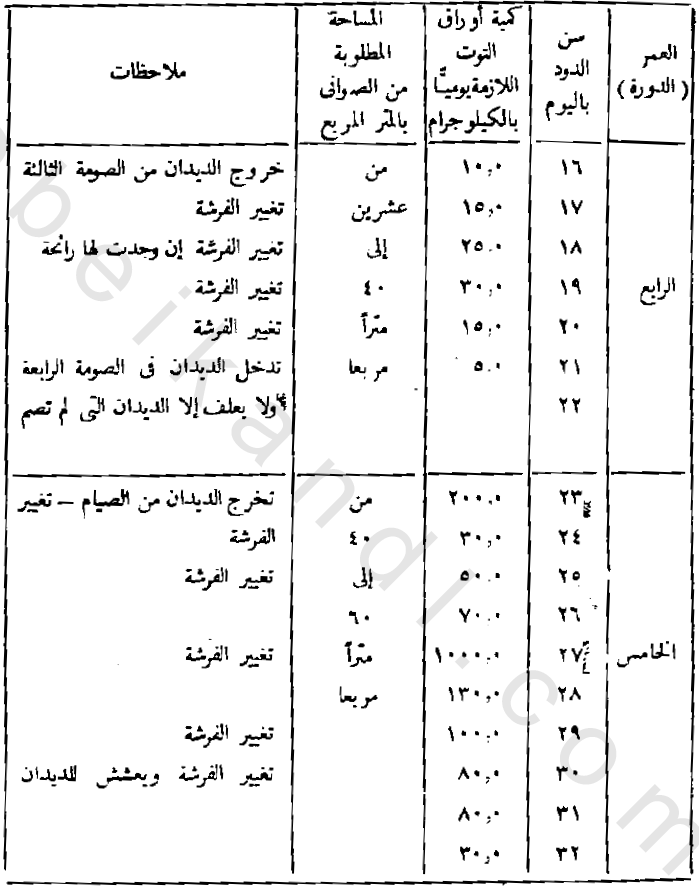 العمر (الدورة) | سن الدود باليوم | كمية أوراق التوت اللازمة يوميًّا بالكيلوجرام | المساحة المطلوبة من الصوانى بالمتر المربع | ملاحظات
الرابع | ١٦ | ١٠,٠ | من | خروج الديدان من الصومة الثالثة
١٧ | ١٥,٠ | عشرين | تغيير الفرشة
١٨ | ٢٥.٠ | إلى | تغيير الفرشة إن وجدت لها رائحة
١٩ | ٣٠,٠ | ٤٠ | تغيير الفرشة
٢٠ | ١٥,٠ | متراً | تغيير الفرشة
٢١ | ٥.٠ | مربعا | تدخل الديدان فى الصومة الرابعة
٢٢ | ولا يعلف إلا الديدان التى لم تصم
الخامس | ٢٣ | ٢٠٠.٠ | من | تخرج الديدان من الصيام – تغيير
٢٤ | ٣٠,٠ | ٤٠ | الفرشة
٢٥ | ٥٠.٠ | إلى | تغيير الفرشة
٢٦ | ٧٠.٠ | ٦٠
٢٧ | ١٠٠٠.٠ | متراً | تغيير الفرشة
٢٨ | ١٣٠,٠ | مربعا
٢٩ | ١٠٠.٠ | تغيير الفرشة
٣٠ | ٨٠,٠ | تغيير الفرشة ويعشش للديدان
٣١ | ٨٠,٠
٣٢ | ٣٠,٠
beikandl.com